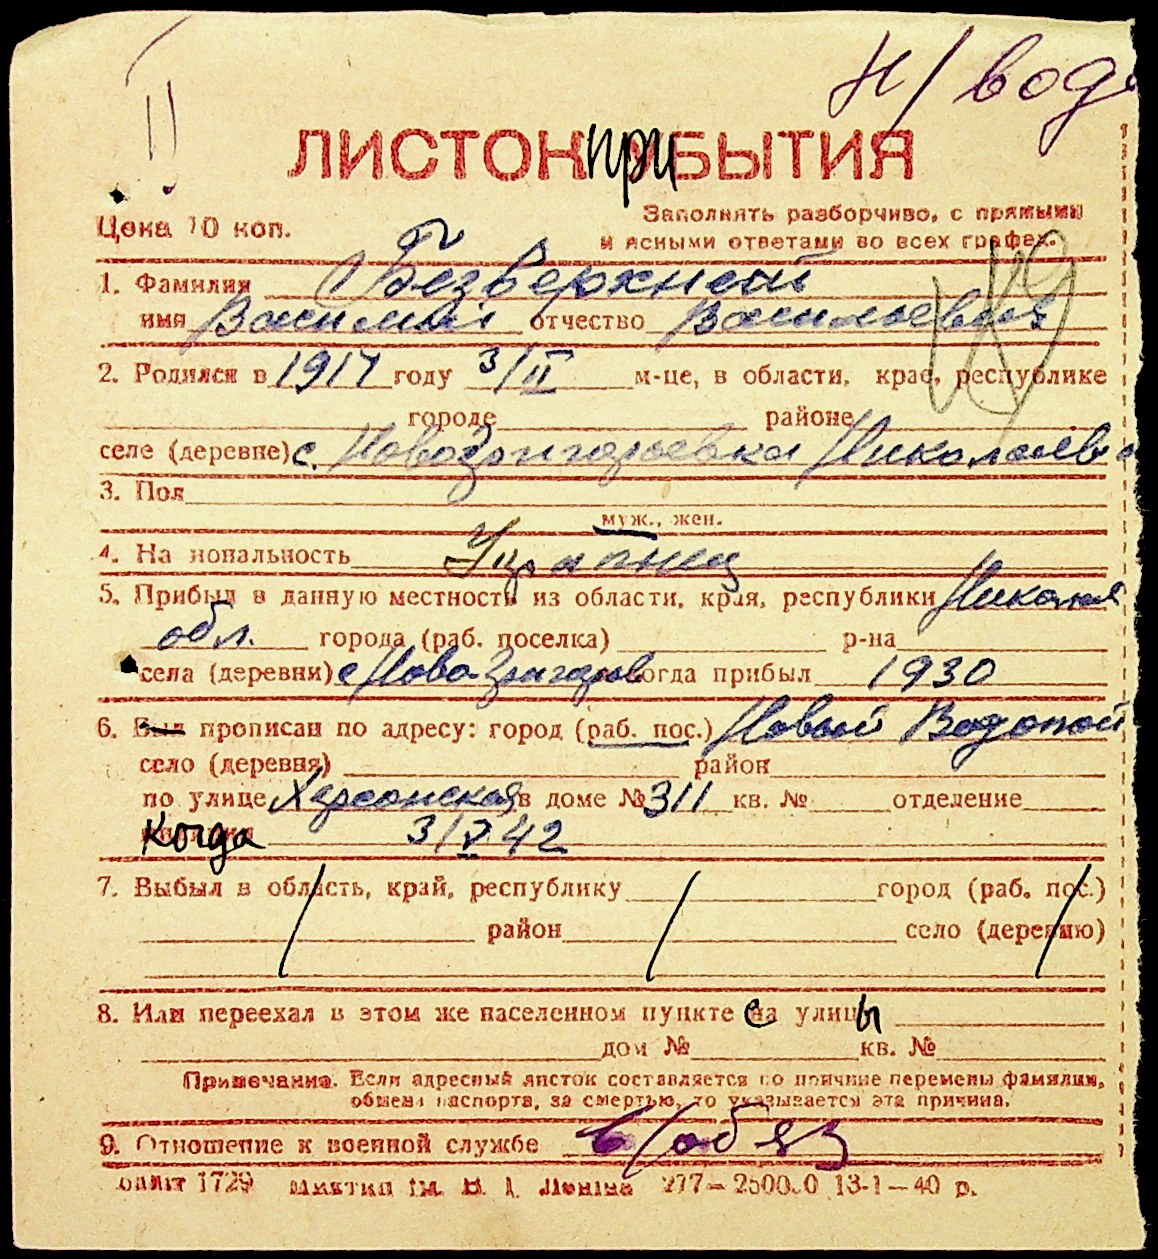 II
Н/вод
ЛИСТОК при БЫТИЯ
Цена 10 коп.
Заполнять разборчиво, с прямыми
и ясными ответами во всех графах.
1. Фамилия Безверхний
имя Василий отчество Васильевич
2. Родился в 1917 году 3/II м-це, в области, крае, республике
городе районе
селе (деревне) с. Новогригорьевка Николаевс
3. Пол
муж., жен.
4. Национальность Украинец
5. Прибыл в данную местность из области, края, республики Никола
обл. города (раб. поселка) р-на
села (деревни) с Ново Григоров когда прибыл 1930
6. Был прописан по адресу: город (раб. пос.) Новый Водопой
село (деревня) район
по улице Херсонская в доме № 311 кв. № отделение
Когда 3/V 42
7. Выбыл в область, край, республику город (раб. пос.)
район село (деревню)
8. Или переехал в этом же населенном пункте с улицы
дом № кв. №
Примечание. Если адресный листок составляется по причине перемены фамилии,
обмена паспорта, за смертью, то указывается эта причина.
9. Отношение к военной службе в/обяз
1729 Ленина 277—2500.0 13-1—40 р.